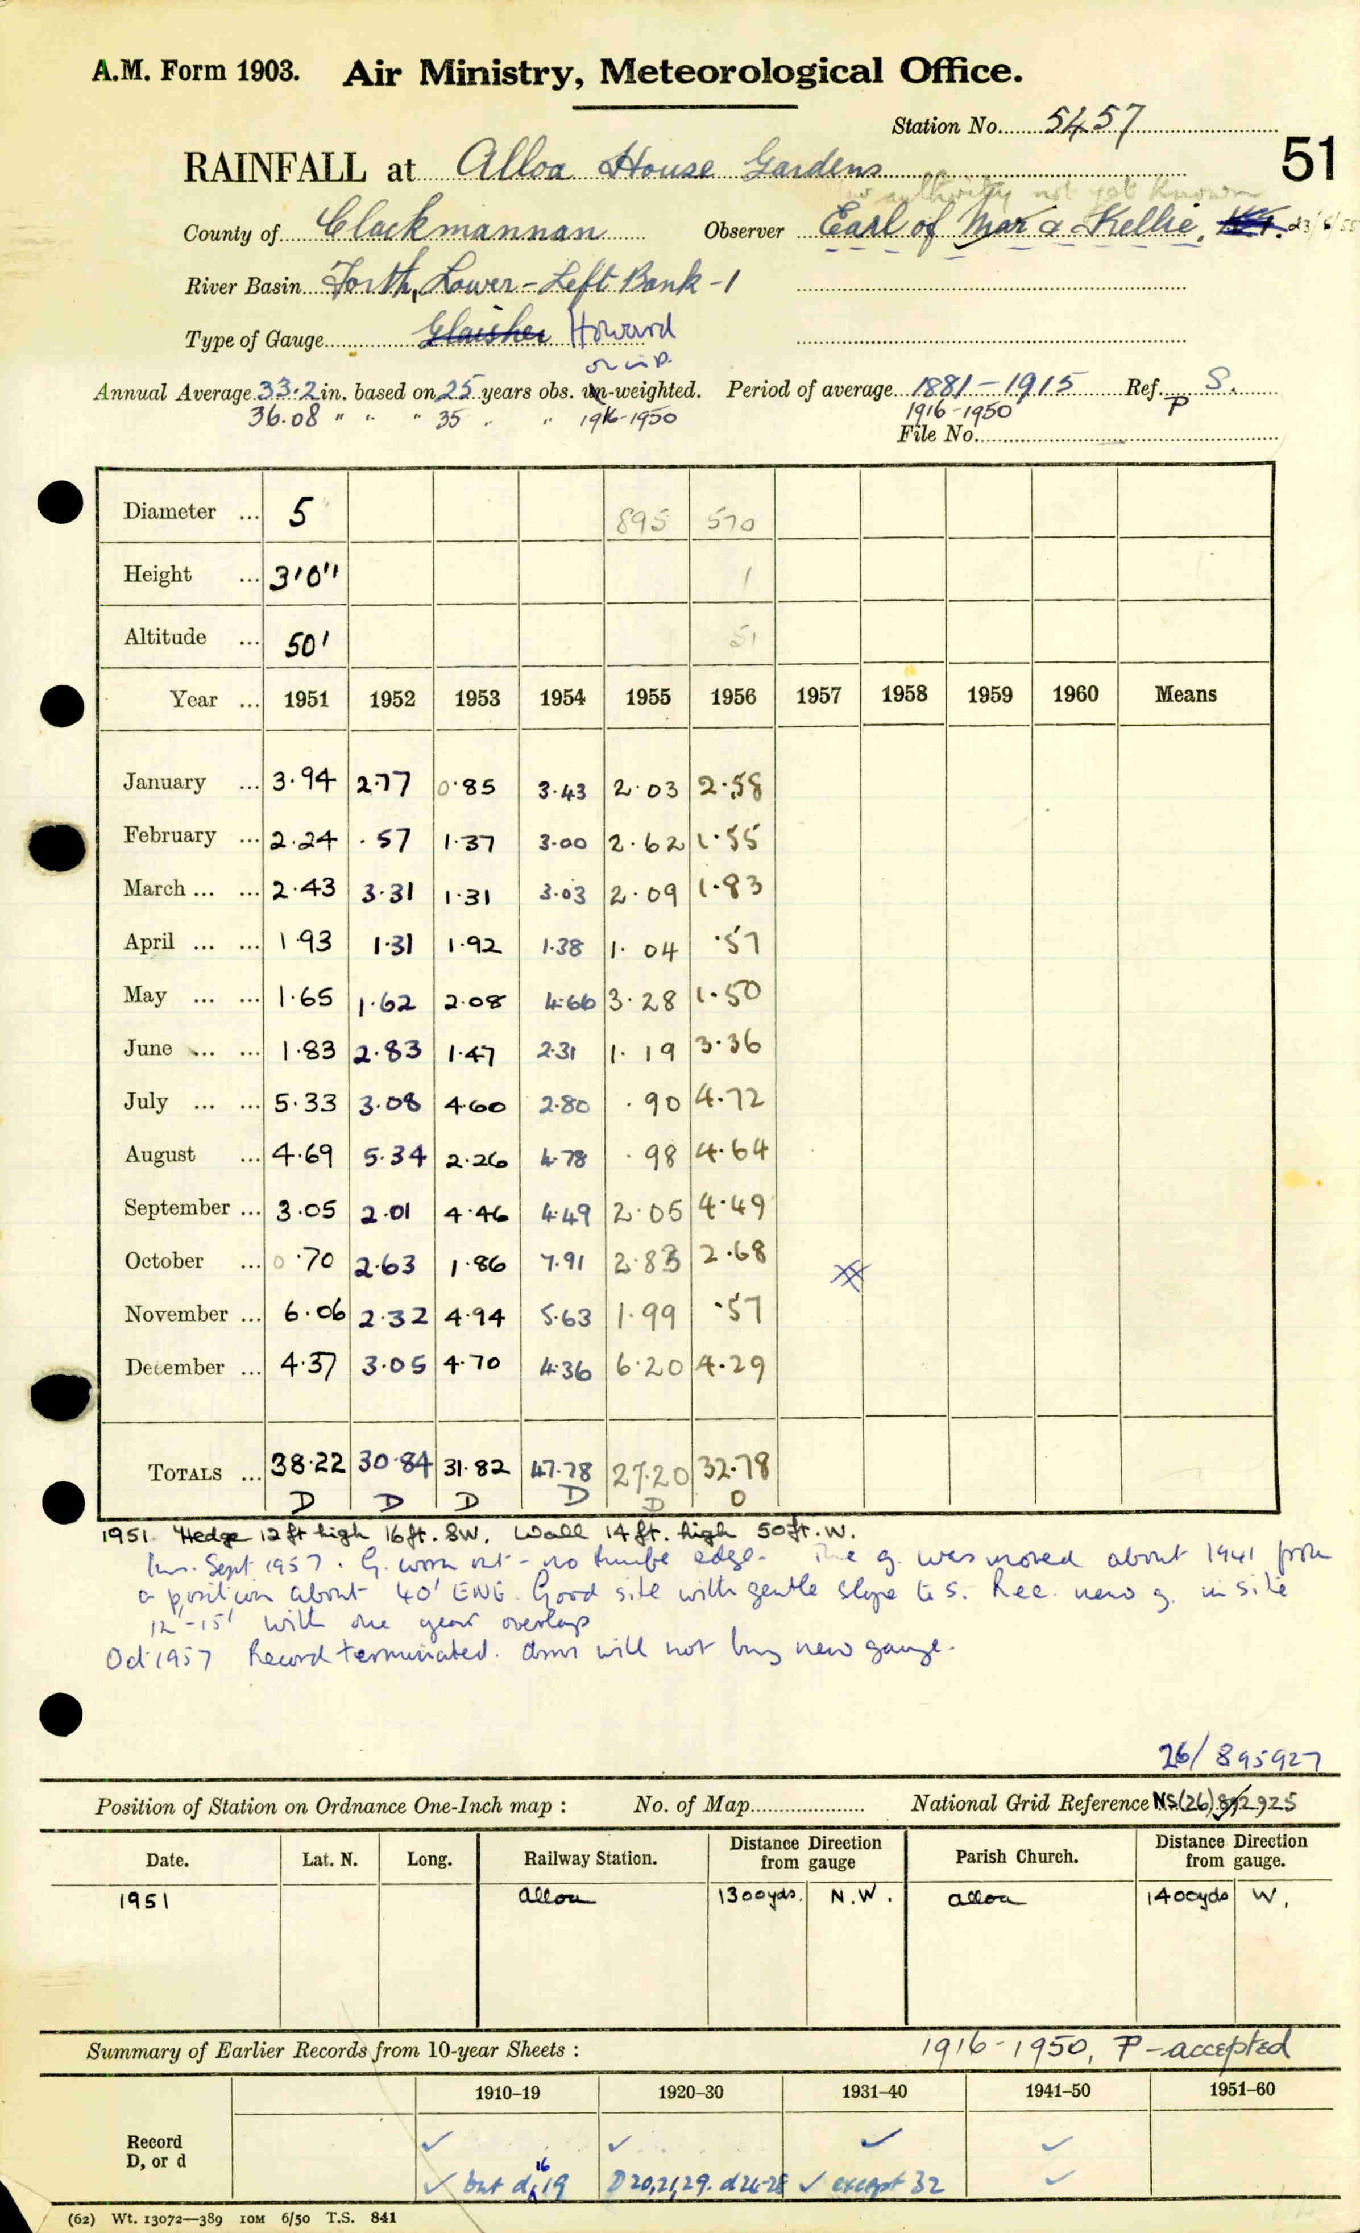 A.M. Form 1903. Air Ministry, Meteorological Office.
Station No. 5457
51
RAINFALL at Alloa House Gardens
authority not yet known
County of Clackmannan Observer Earl of Mar & Kellie. 23/6/55
River Basin Forth, Lower - Left Bank - 1
Type of Gauge Glaisher Howard
Annual Average 33.2 in. based on 25 years obs. un-weighted. Period of average 1881-1915 Ref. S.
36.08 " " " 35 " " 1916-1950 1916-1950 P
File No.
Diameter ... 5 895 570
Height ... 3'0" 1
Altitude ... 50' 51
Year ... 1951 1952 1953 1954 1955 1956 1957 1958 1959 1960 Means
January ... 3.94 2.77 0.85 3.43 2.03 2.58
February ... 2.24 .57 1.37 3.00 2.62 1.55
March ... ... 2.43 3.31 1.31 3.03 2.09 1.83
April ... ... 1.93 1.31 1.92 1.38 1.04 .57
May ... ... 1.65 1.62 2.08 4.66 3.28 1.50
June ... ... 1.83 2.83 1.47 2.31 1.19 3.36
July ... ... 5.33 3.08 4.60 2.80 .90 4.72
August ... 4.69 5.34 2.26 4.78 .98 4.64
September ... 3.05 2.01 4.46 4.49 2.05 4.49
October ... 0.70 2.63 1.86 7.91 2.83 2.68
November ... 6.06 2.32 4.94 5.63 1.99 .57
December ... 4.37 3.05 4.70 4.36 6.20 4.29
TOTALS ... 38.22 30.84 31.82 47.78 27.20 32.78
D D D D D D
1951. Hedge 12ft high 16ft. SW. Wall 14ft. high 50ft. W.
Ins. Sept 1957. G. worn out - no edge. The g. was moved about 1941 from
a position about 40' ENE. Good site with gentle slope to S. Rec. new g. in site
12'-15' with one year overlap
Oct 1957 Record terminated. will not buy new gauge.
26/895927
Position of Station on Ordnance One-Inch map : No. of Map National Grid Reference NS(26)892925
Date. Lat. N. Long. Railway Station. Distance Direction from gauge Parish Church. Distance Direction from gauge.
1951 Alloa 1300yds. N.W. Alloa 1400yds W.
Summary of Earlier Records from 10-year Sheets : 1916-1950, P - accepted
1910-19 1920-30 1931-40 1941-50 1951-60
Record ✓ ✓ ✓ ✓
D, or d ✓ but d 16, 19 D 20,21,29. d 24-28 ✓ except 32 ✓
(62) Wt. 13072—389 10M 6/50 T.S. 841